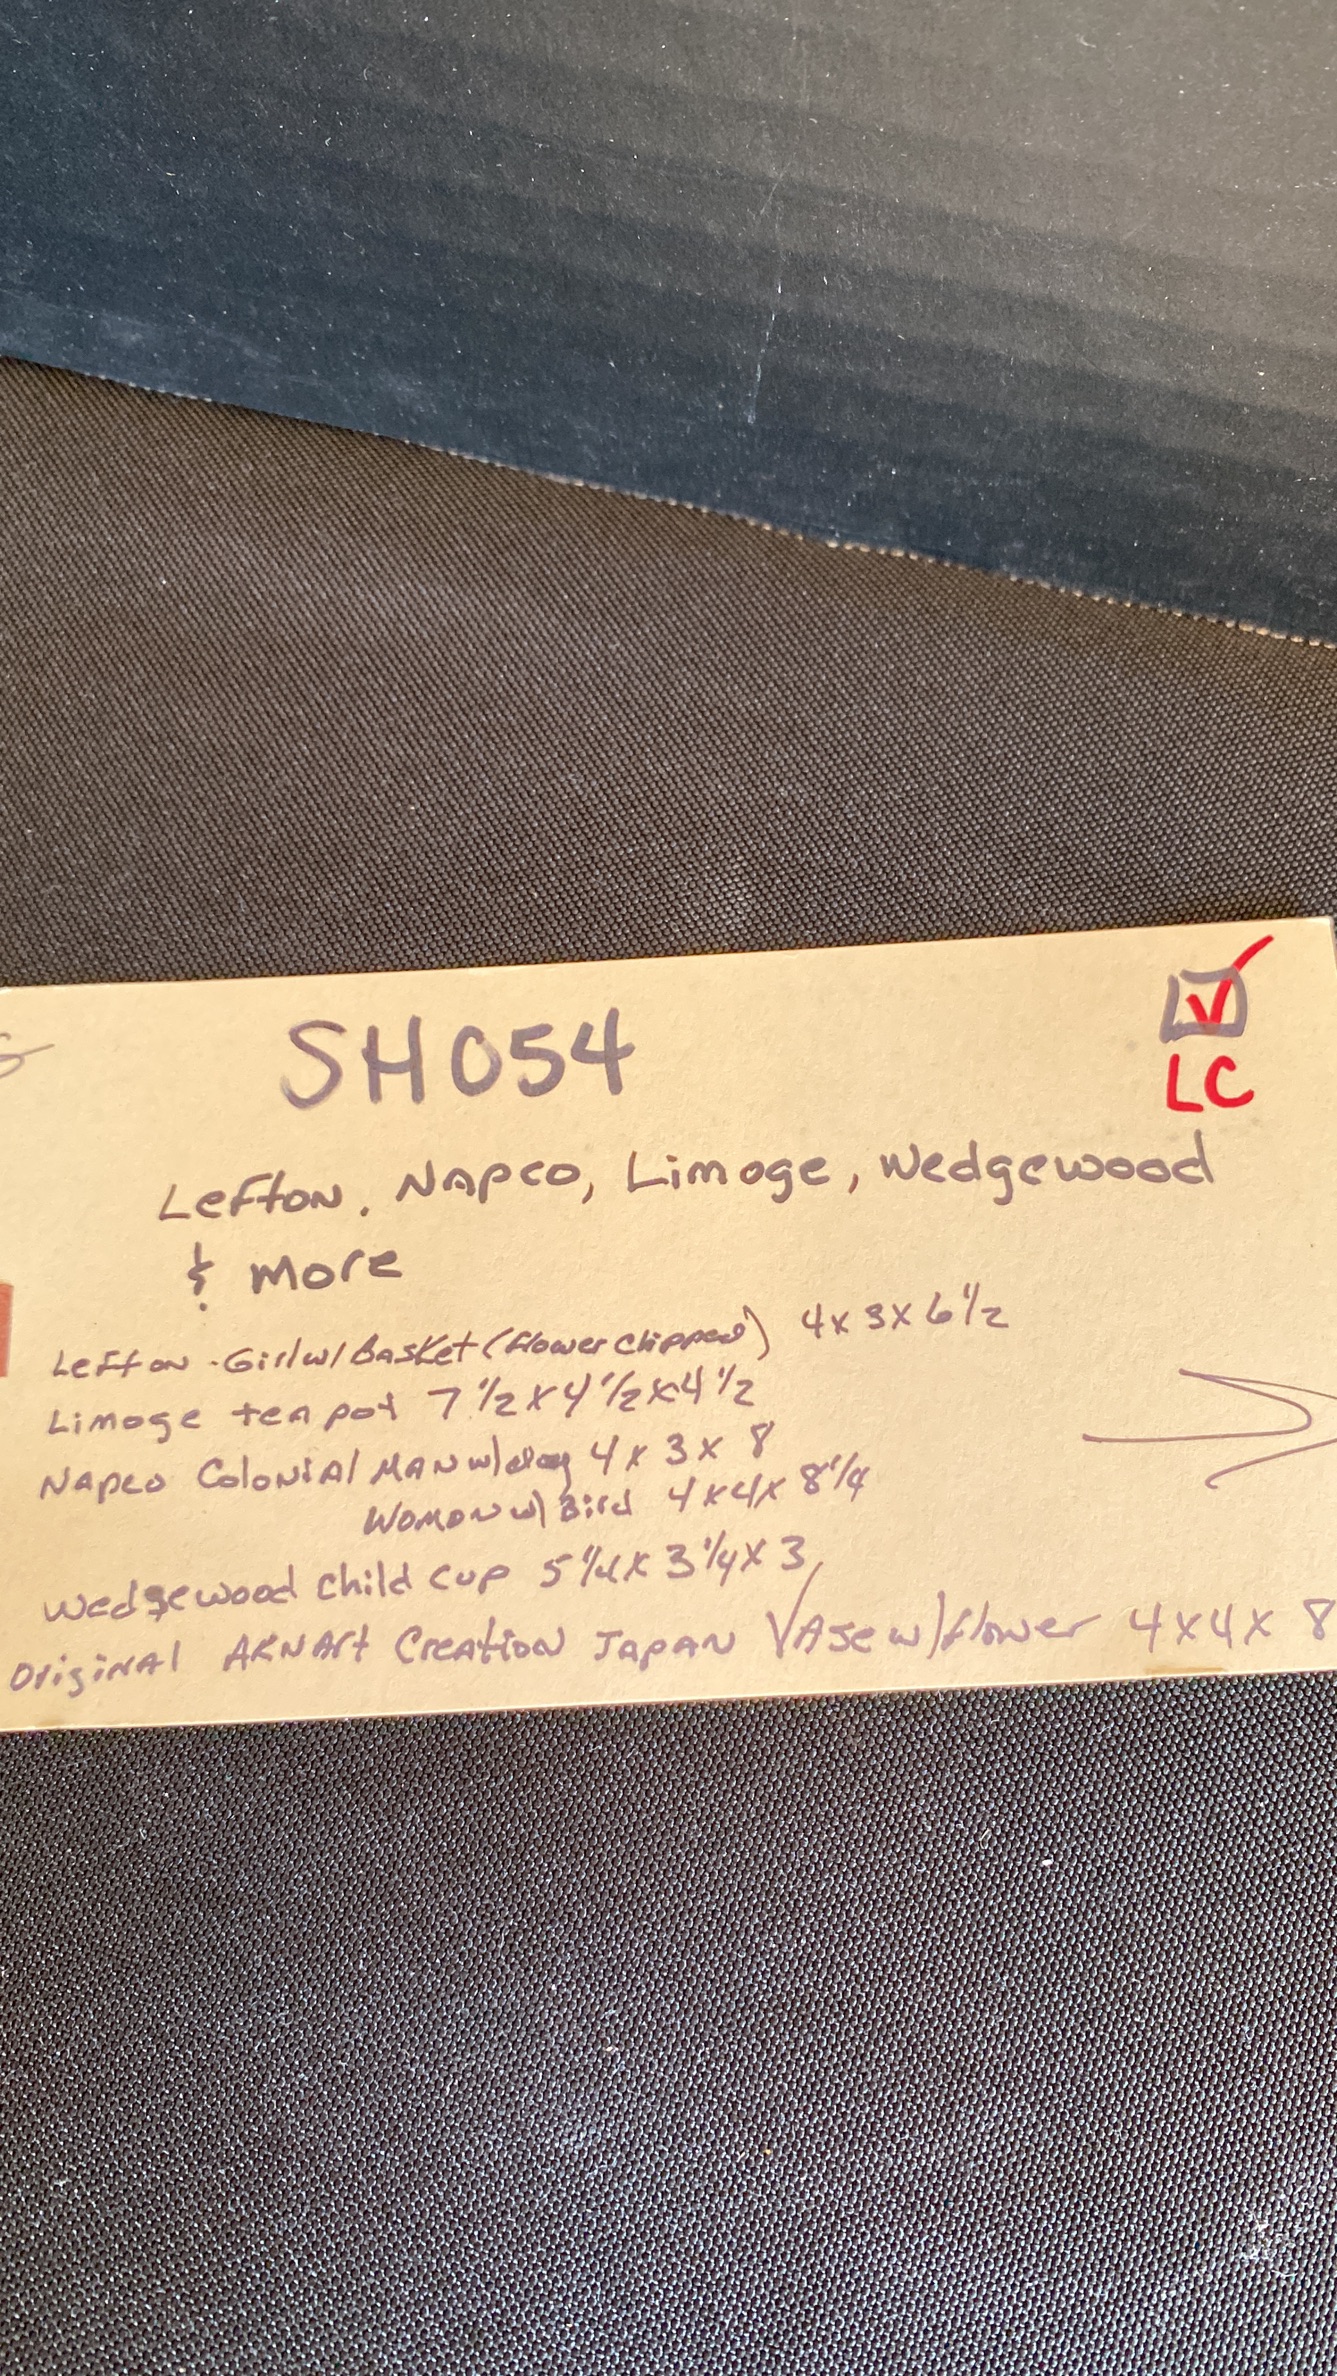 SH054
LC
Lefton, Napco, Limoge, Wedgewood
& more
Lefton - Girl w/ Basket (flower chipped) 4x3x6 1/2
Limoge tea pot 7 1/2 x 4 1/2 x 4 1/2
Napco Colonial Man w/ dog 4 x 3 x 8
Womon w/ Bird 4x4x 8 1/4
Wedgewood child cup 5 1/4 x 3 1/4 x 3
Original ARNART Creation Japan Vase w/ flower 4x4x 8